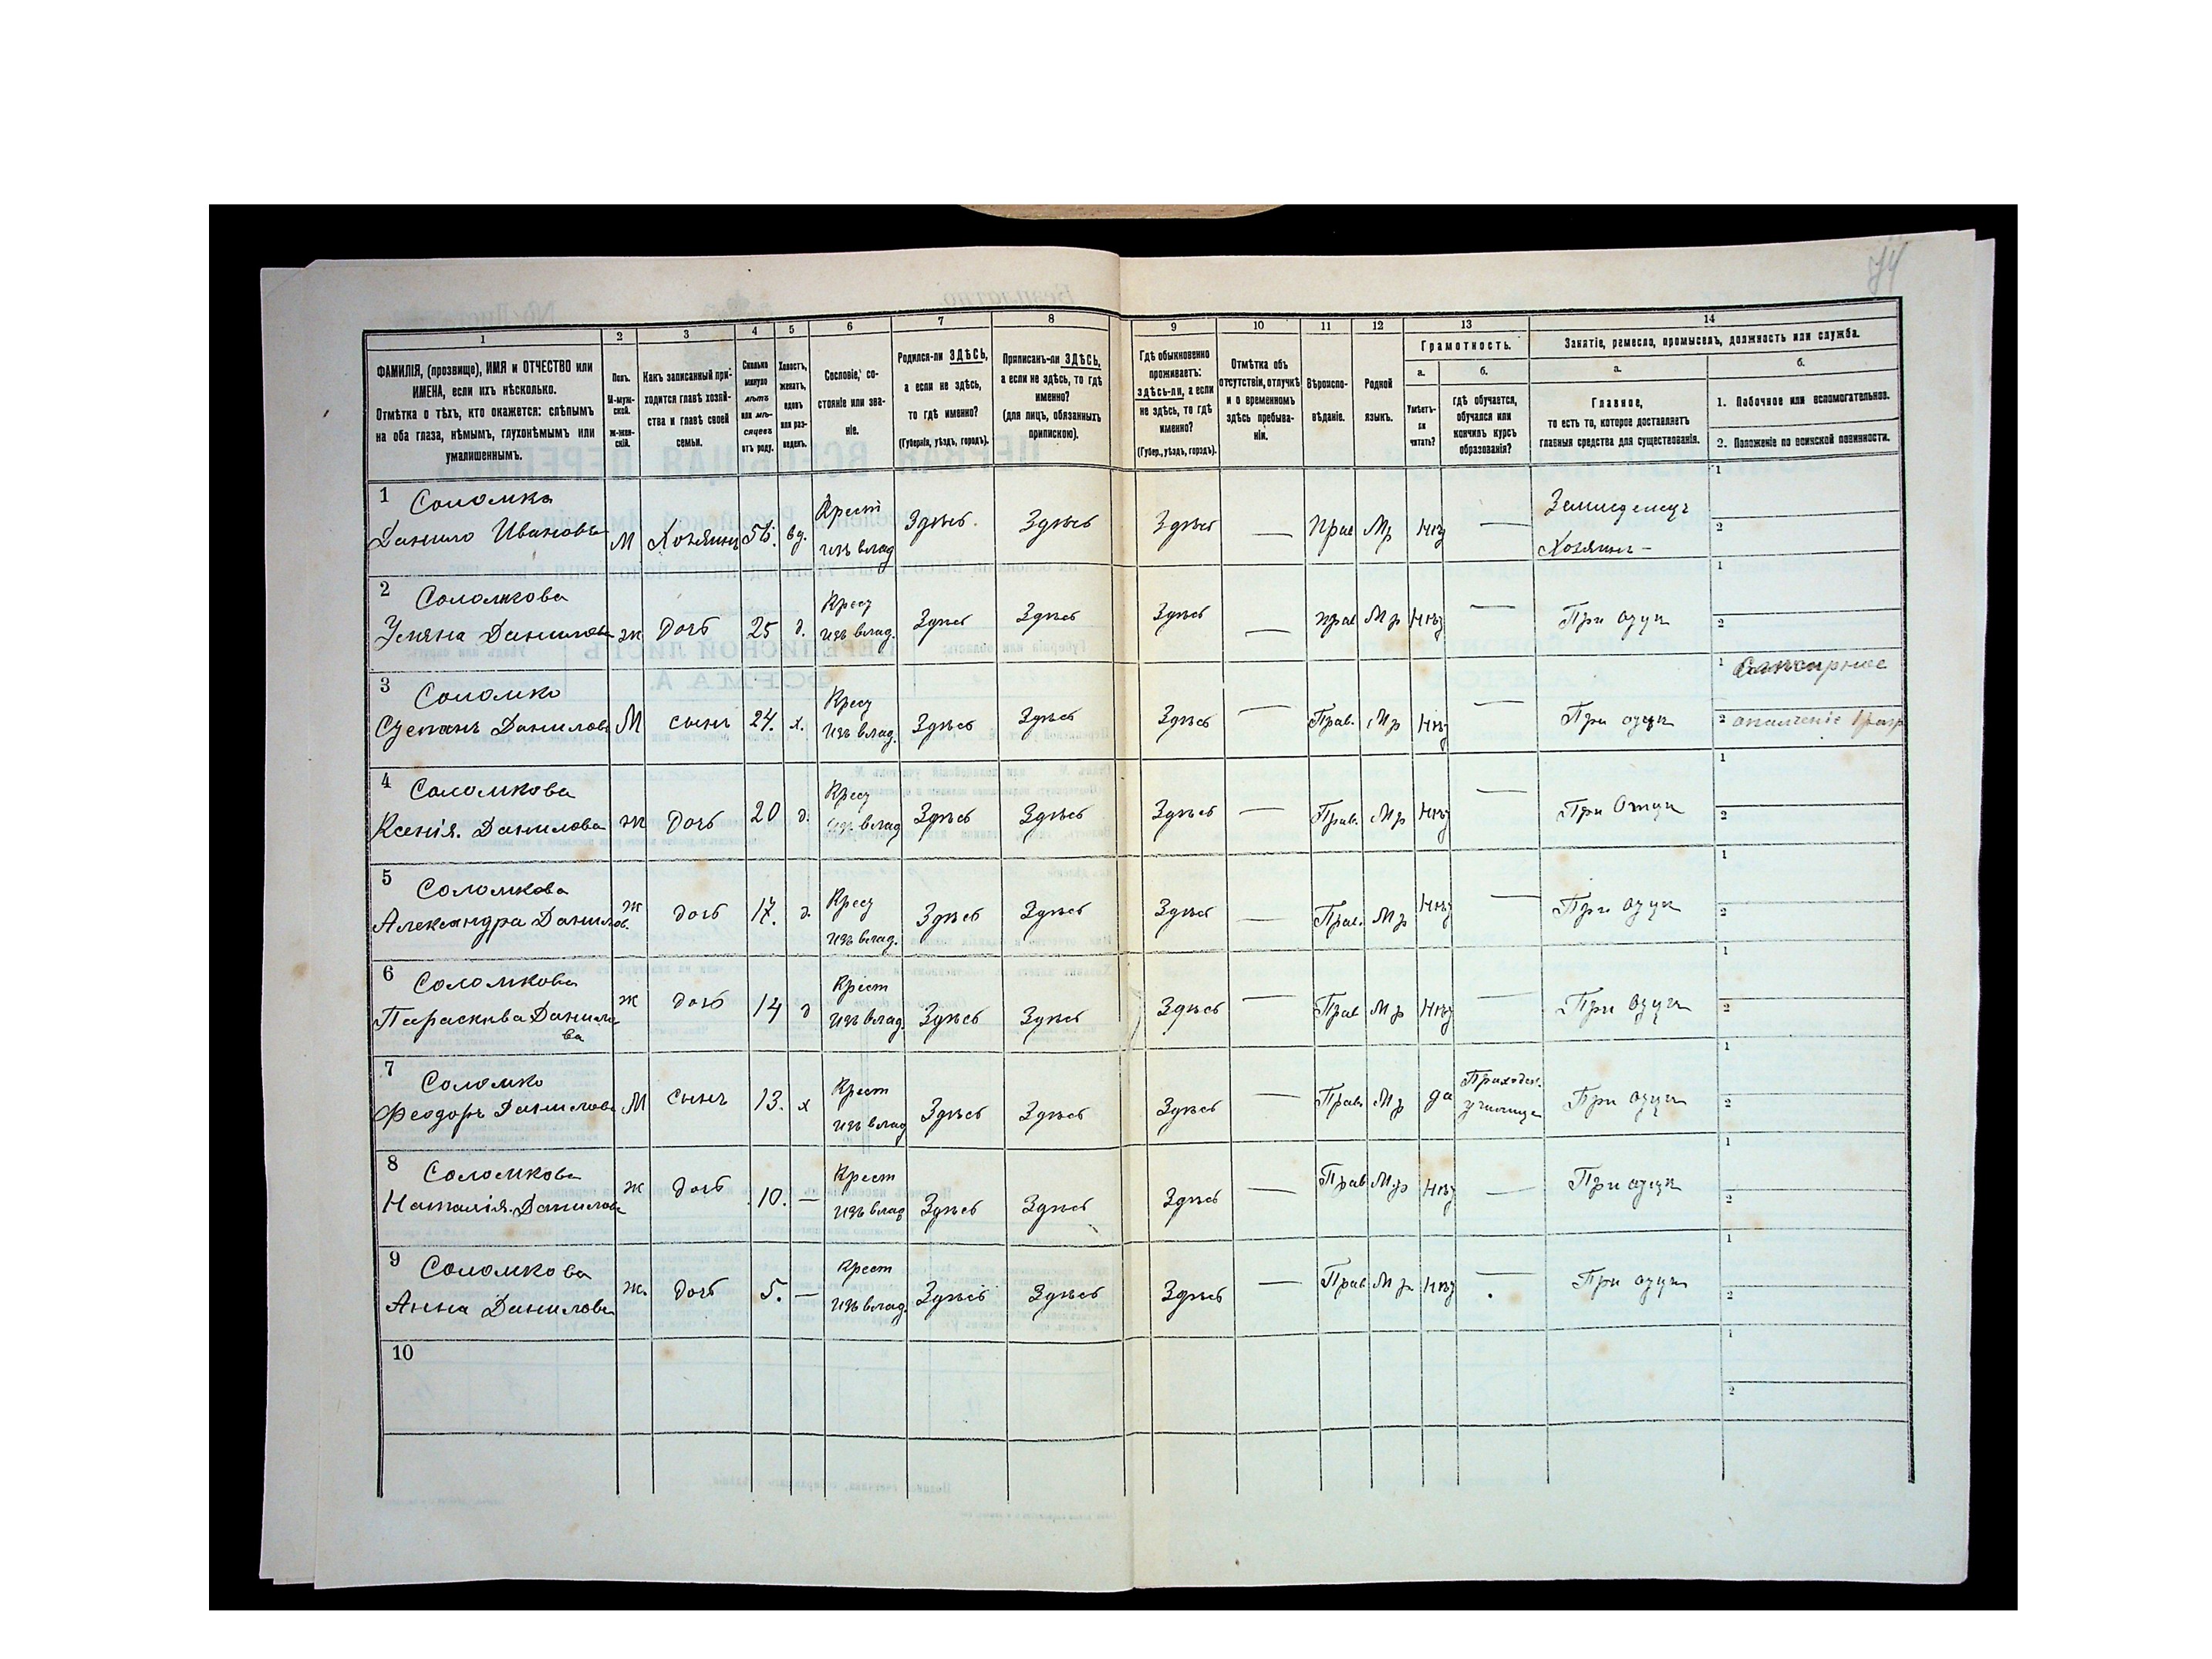 74
1
ФАМИЛІЯ, (прозвище), ИМЯ и ОТЧЕСТВО или
ИМЕНА, если ихъ нѣсколько.
Отмѣтка о тѣхъ, кто окажется: слѣпымъ
на оба глаза, нѣмымъ, глухонѣмымъ или
умалишеннымъ.
2
Полъ.
М-муж-
ской.
Ж-жен-
скій.
3
Какъ записанный при-
ходится главѣ хозяй-
ства и главѣ своей
семьи.
4
Сколько
минуло
лѣтъ
или мѣ-
сяцевъ
отъ роду.
5
Холостъ,
женатъ,
вдовъ
или раз-
веденъ.
6
Сословіе, со-
стояніе или зва-
ніе.
7
Родился-ли ЗДѢСЬ,
а если не здѣсь,
то гдѣ именно?
(Губернія, уѣздъ, городъ).
8
Приписанъ-ли ЗДѢСЬ,
а если не здѣсь, то гдѣ
именно?
(для лицъ, обязанныхъ
припискою).
9
Гдѣ обыкновенно
проживаетъ:
здѣсь-ли, а если
не здѣсь, то гдѣ
именно?
(Губер., уѣздъ, городъ).
10
Отмѣтка объ
отсутствіи, отлучкѣ
и о временномъ
здѣсь пребыва-
ніи.
11
Вѣроиспо-
вѣданіе.
12
Родной
языкъ.
13
Грамотность.
а.
Умѣетъ-
ли
читать?
б.
гдѣ обучается,
обучался или
кончилъ курсъ
образованія?
14
Занятіе, ремесло, промыселъ, должность или служба.
а.
Главное,
то есть то, которое доставляетъ
главныя средства для существованія.
б.
1. Побочное или вспомогательное.
2. Положеніе по воинской повинности.
1 Соломка
Данило Ивановъ М Хозяинъ вд. Крест изъ влад Здѣсь Здѣсь Здѣсь — Прав Мр Нѣт — Земледелецъ Хозяинъ — 1 2
2 Соломкова
Ульяна Данилова ж Дочь 25 д. Крест изъ влад. Здѣсь Здѣсь Здѣсь — прав Мр Нѣт — При отцѣ 1 2
3 Соломко
Степанъ Даниловъ М сынъ 24. х. Крест изъ влад. Здѣсь Здѣсь Здѣсь — Прав. Мр Нѣт — При отцѣ 1 2 ополченіе 1 разр
4 Соломкова
Ксенія. Данилова ж Дочь 20 д. Крест изъ влад Здѣсь Здѣсь Здѣсь — Прав. Мр Нѣт — При Отцѣ 1 2
5 Соломкова
Александра Данилов. ж дочь 17. д. Крест изъ влад. Здѣсь Здѣсь Здѣсь — Прав. Мр Нѣт — При отцѣ 1 2
6 Соломкова
Параскѣва Данило
ва ж дочь 14 д Крест изъ влад. Здѣсь Здѣсь Здѣсь — Прав Мр Нѣт — При отцѣ 1 2
7 Соломко
Феодоръ Даниловъ М сынъ 13. х Крест изъ влад Здѣсь Здѣсь Здѣсь — Прав. Мр да Приходск. училище При отцѣ 1 2
8 Соломкова
Наталія. Данилова ж дочь 10. — Крест изъ влад Здѣсь Здѣсь Здѣсь — Прав Мр Нѣт — При отцѣ 1 2
9 Соломкова
Анна Данилова ж. дочь 5. — крест изъ влад. Здѣсь Здѣсь Здѣсь — Прав Мр Нѣт — При отцѣ 1 2
10 1 2